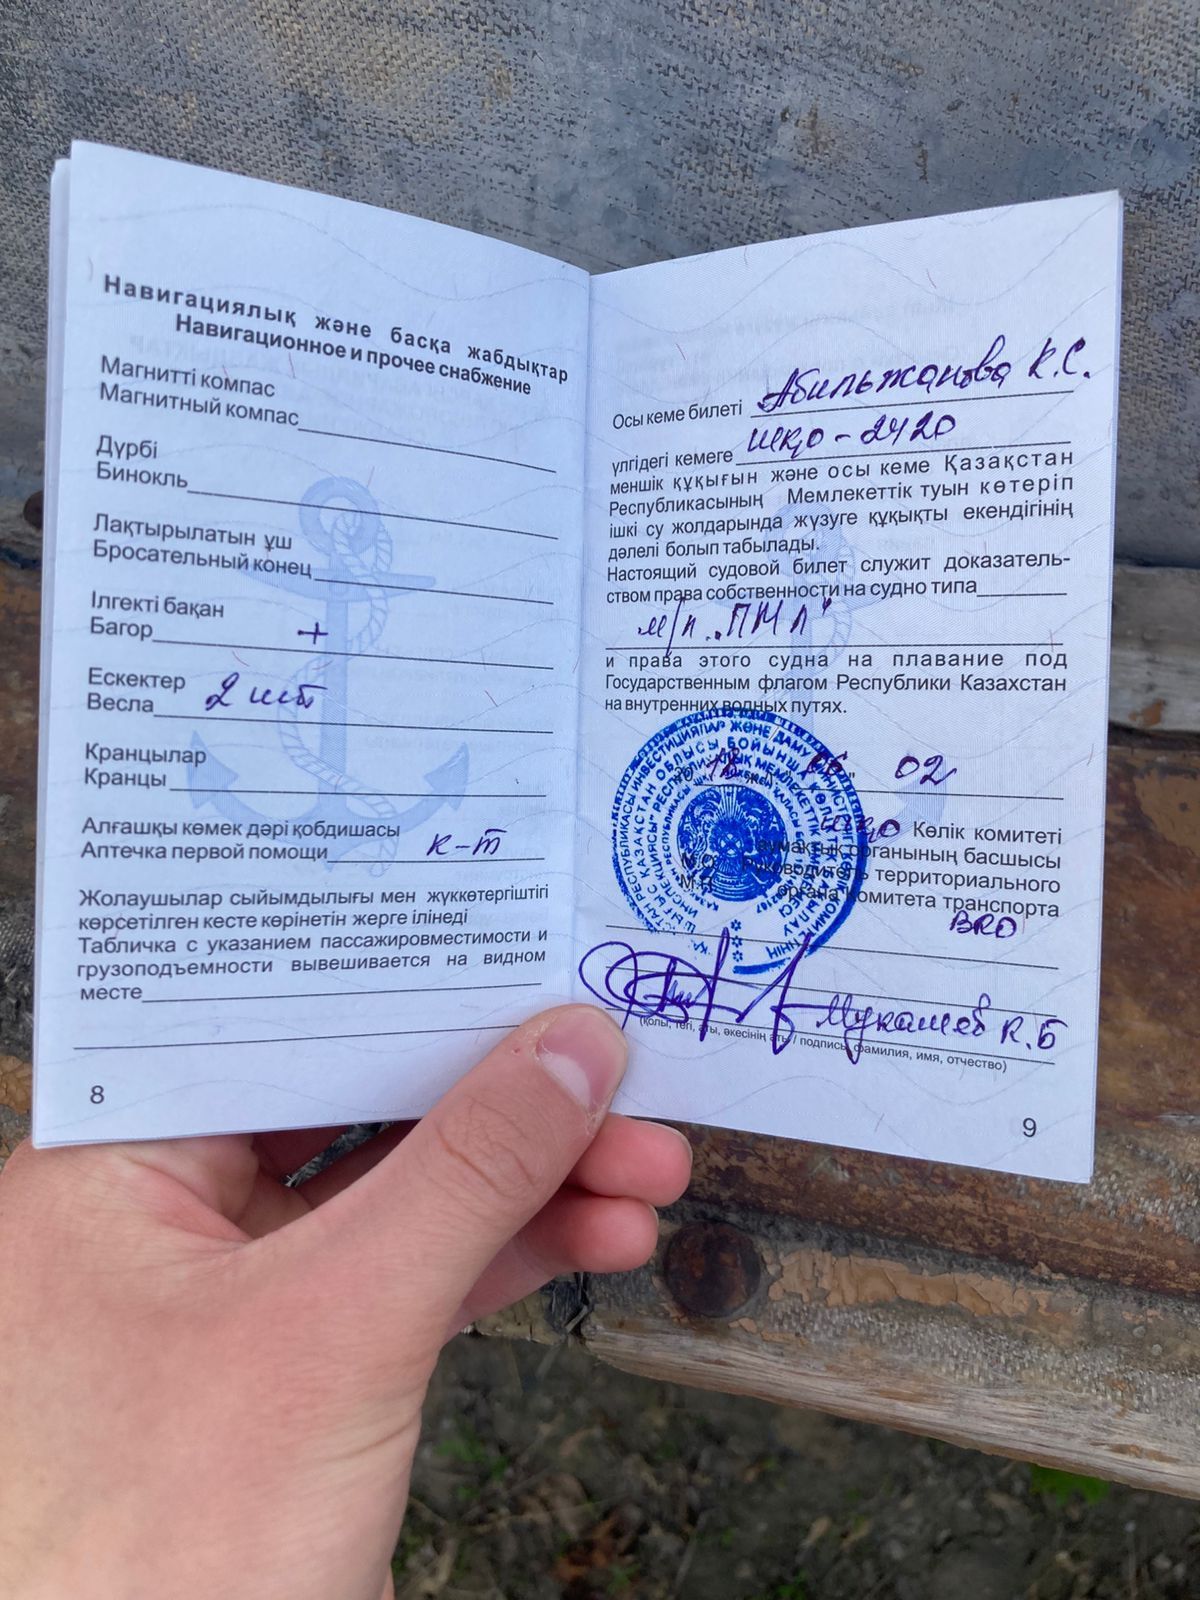 Навигациялық және басқа жабдықтар
Навигационное и прочее снабжение
Магнитті компас
Магнитный компас
Дүрбі
Бинокль
Лақтырылатын ұш
Бросательный конец
Ілгекті бақан
Багор +
Ескектер
Весла 2 шт
Кранцылар
Кранцы
Алғашқы көмек дәрі қобдишасы
Аптечка первой помощи к-т
Жолаушылар сыйымдылығы мен жүккөтергіштігі
көрсетілген кесте көрінетін жерге ілінеді
Табличка с указанием пассажировместимости и
грузоподъемности вывешивается на видном
месте
8
Осы кеме билеті Абильжанова К.С.
үлгідегі кемеге ШҚО-2420
меншік құқығын және осы кеме Қазақстан
Республикасының Мемлекеттік туын көтеріп
ішкі су жолдарында жүзуге құқықты екендігінің
дәлелі болып табылады.
Настоящий судовой билет служит доказатель-
ством права собственности на судно типа
м/л „ПМЛ"
и права этого судна на плавание под
Государственным флагом Республики Казахстан
на внутренних водных путях.
20 18 ж.г. "06" 02
ШҚО Көлік комитеті
аумақтық органының басшысы
М.О. Руководитель территориального
М.П. органа комитета транспорта
ВКО
Мукашев К.Б
(қолы, тегі, аты, әкесінің аты / подпись, фамилия, имя, отчество)
9